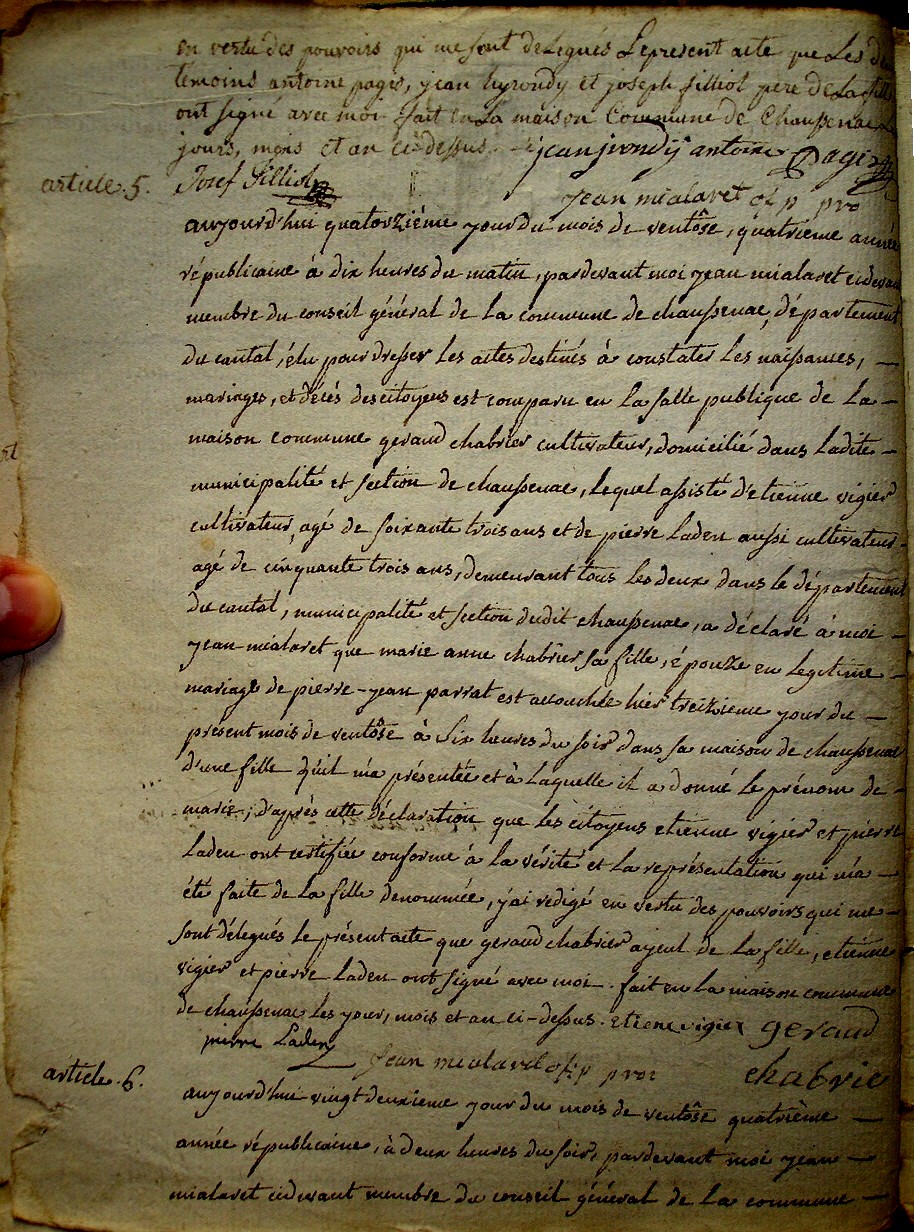 en vertu des pouvoirs qui me sont delegués Le present acte que Les d
temoins antoine pages, jean et joseph filliol pere de La fille
ont signé avec moi fait en La maison Commune de Chaussenac
jours, mois et an ci dessus jean antoine Pages
article 5. Josef Filliol
jean mialaret of p pro
aujourd'hui quatorzième jour du mois de ventôse, quatrieme année
républicaine à dix heures du matin, pardevant moi jean mialaret cidevant
membre du conseil général de la commune de chaussenac, département
du cantal, élu pour dresser les actes destinés à constater les naissances, —
mariages, et décès des citoyens est comparu en la salle publique de la —
maison commune geraud chabrier cultivateur, domicilié dans ladite —
municipalité et section de chaussenac, lequel assisté d'etienne vigier
cultivateur, agé de soixante trois ans et de pierre Laden aussi cultivateur
agé de cinquante trois ans, demeurant tous les deux dans le département
du cantal, municipalité et section dudit chaussenac, a déclaré à moi —
jean mialaret que marie anne chabrier sa fille, épouze en legitime —
mariage de pierre-jean parrat est accouchée hier treizieme jour du —
présent mois de ventôse à six heures du soir dans sa maison de chaussenac
d'une fille qu'il m'a présentée et à laquelle il a donné le prénom de —
marie; d'après cette déclaration que les citoyens etienne vigier et pierre
Laden ont certifiée conforme à la vérité et la représentation qui m'a —
été faite de la fille denommée, j'ai redigé en vertu des pouvoirs qui me —
sont délegués le présent acte que geraud chabrier ayeul de la fille, etienne
vigier et pierre Laden ont signé avec moi. fait en la maison commune
de chaussenac les jour, mois et an ci-dessus. etiene vigier geraud
pierre Laden jean mialaret of p pro chabrie
article 6.
aujourd'hui vingt deuxieme jour du mois de ventôse quatrième —
année républicaine, à deux heures du soir, pardevant moi jean —
mialaret cidevant membre du conseil général de la commune —